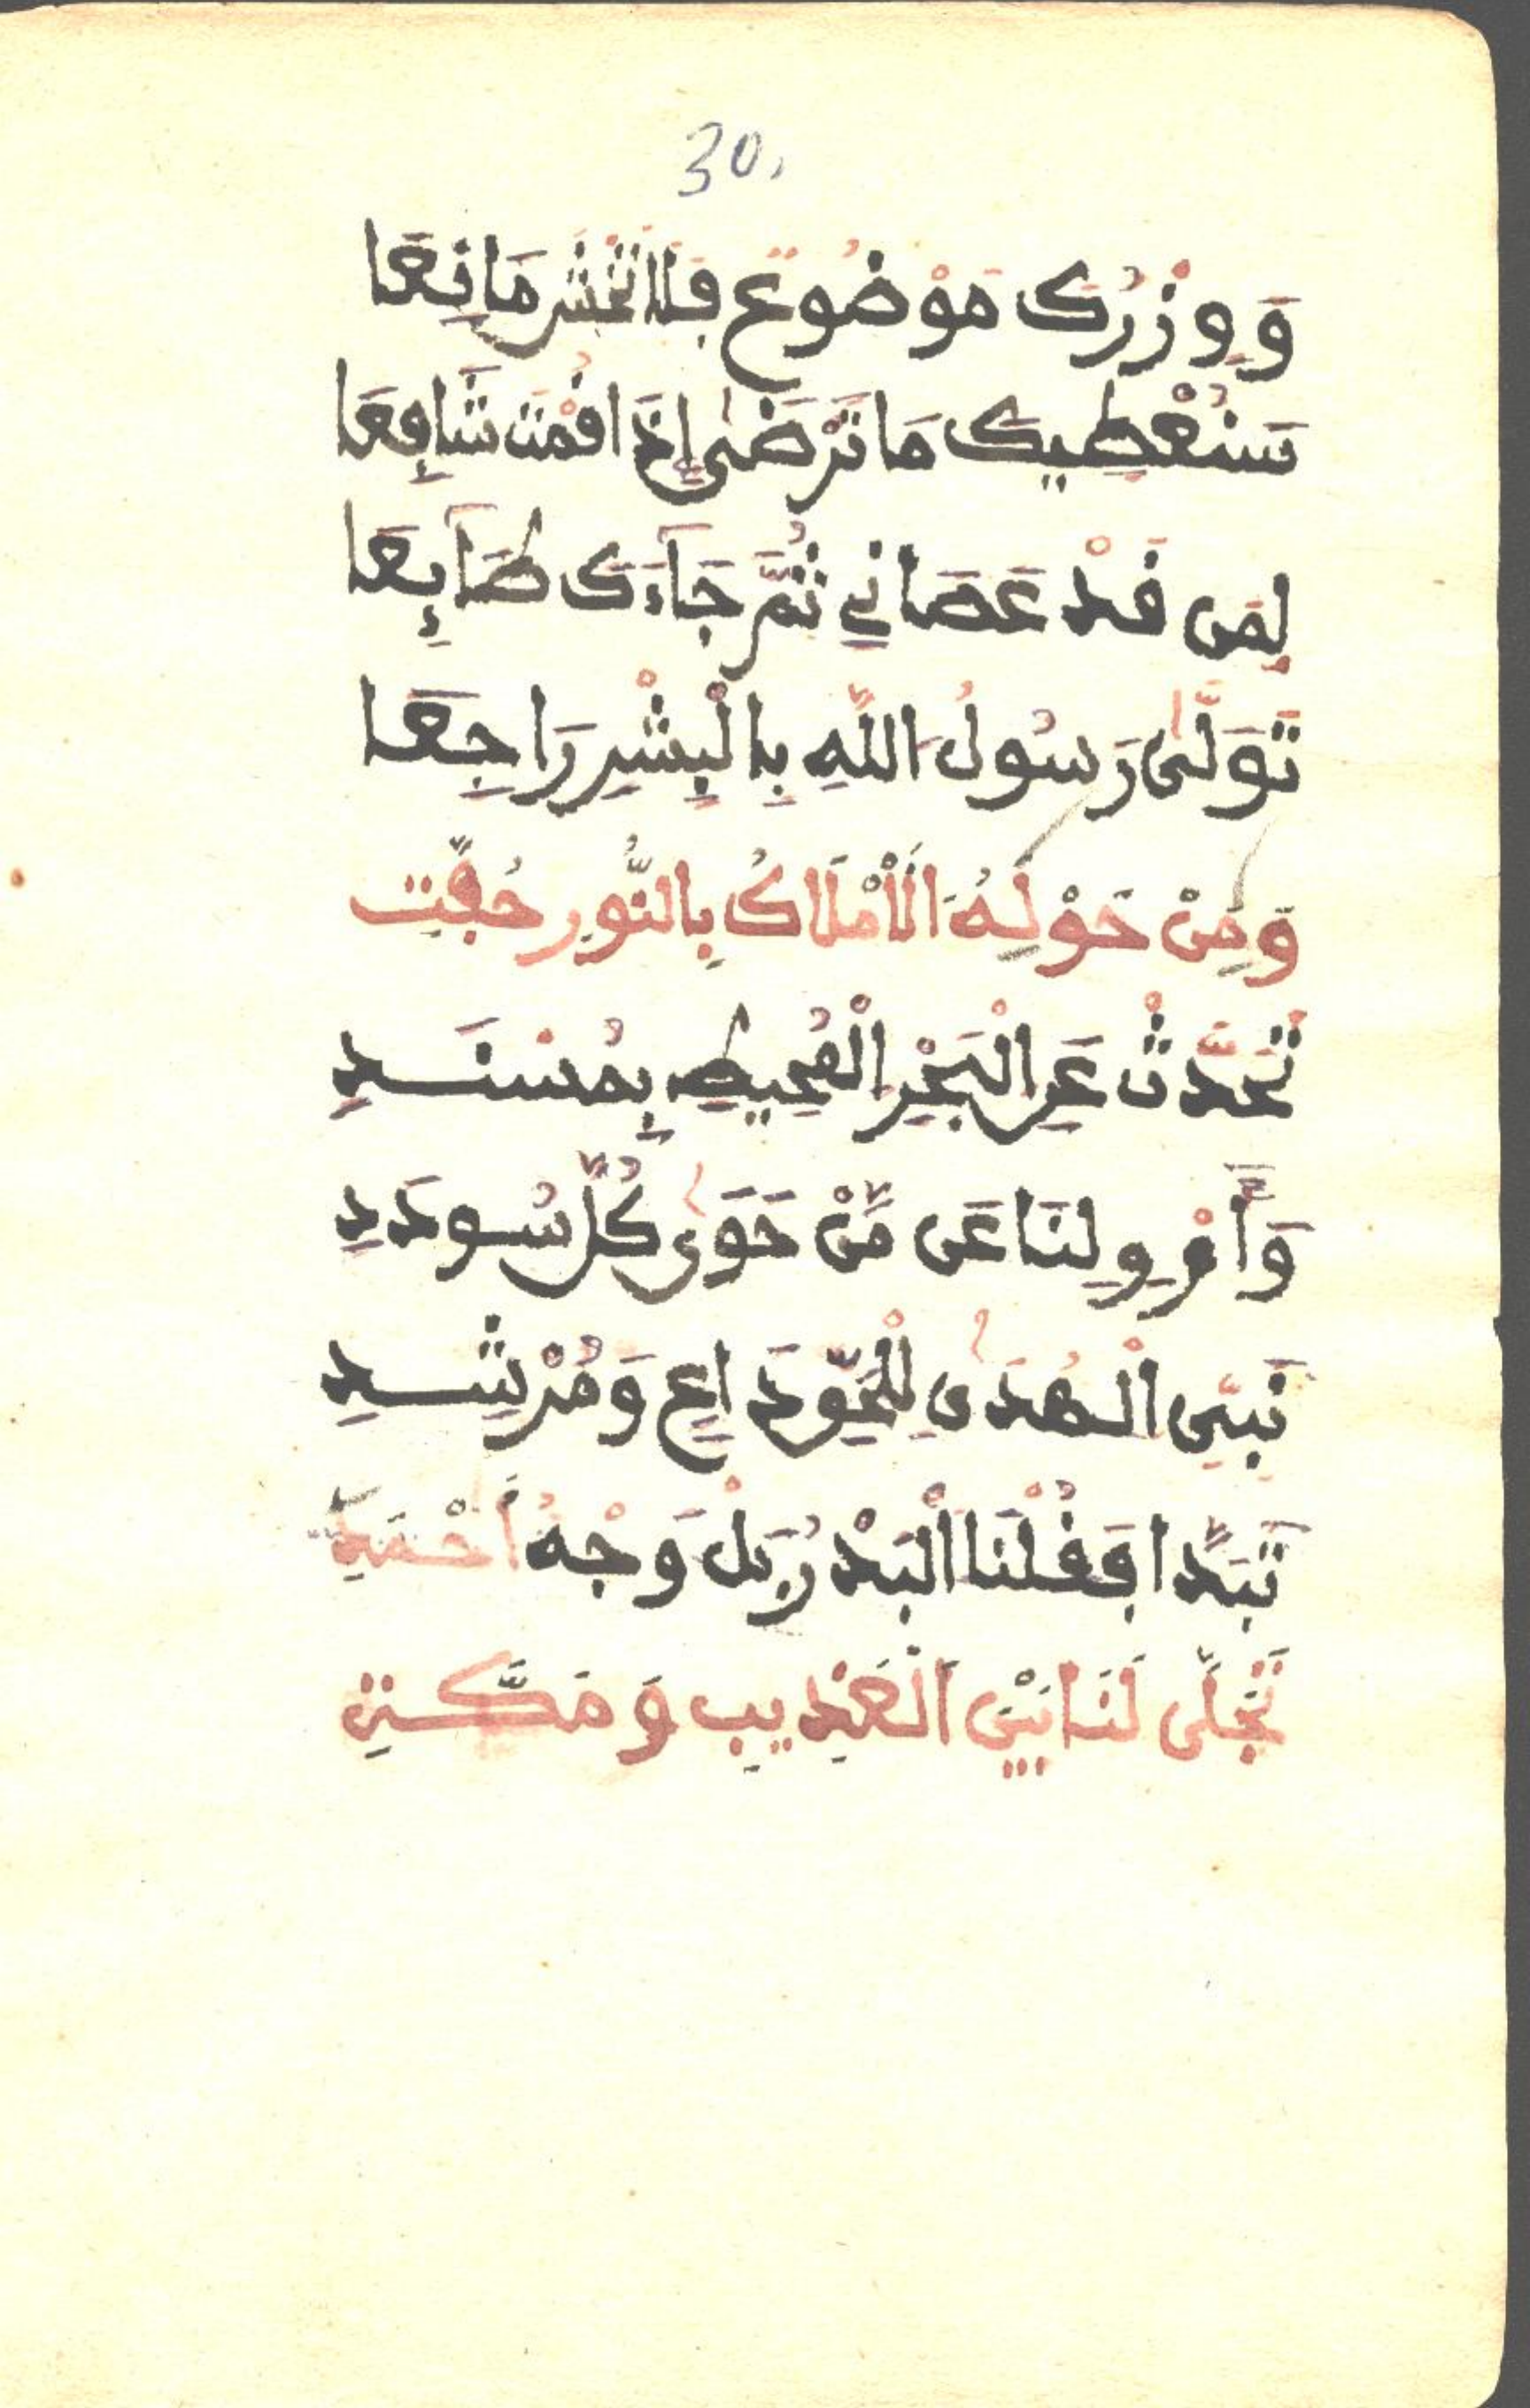 30،
وَوِزْرُكَ مَوْضُوعٌ فَلَا تَخْشَ مَانِعَا
سَنُعْطِيكَ مَا تَرْضَىٰ إِذَا قُمْتَ شَافِعَا
لِمَن قَدْ عَصَانِي ثُمَّ جَآءَكَ طَآئِعَا
تَوَلَّىٰ رَسُولُ اللَّهِ بِالْبِشْرِ رَاجِعَا
وَمِنْ حَوْلِهُ الْأَمْلَاكُ بِالنُّورِ حُفَّتِ
تَحَدَّثْ عَنِ الْبَحْرِ الْمُحِيطِ بِمُسْنَدِ
وَأَمْرِوِ لَنَا عَن مَّنْ حَوَىٰ كُلَّ سُودَدِ
نَبِيِّ الْهُدَىٰ لِلْحَقِّ دَاعٍ وَمُرْشِدِ
تَبَدَّا فَقُلْنَا الْبَدْرُ بَلْ وَجْهُ أَحْمَدِ
تَجَلَّى لَنَا بَيْنَ الْعُذَيْبِ وَمَكَّةِ